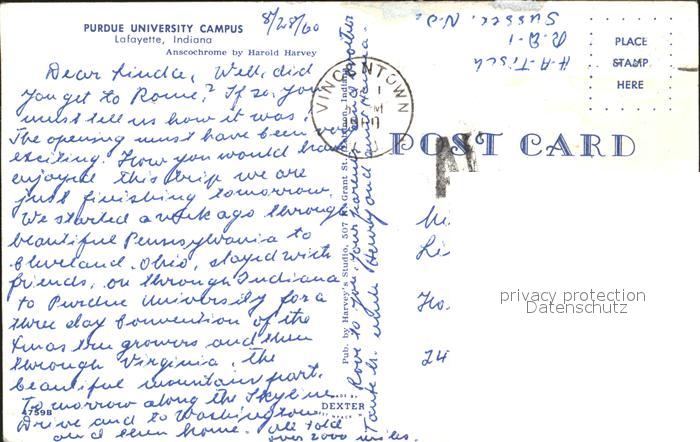 PURDUE UNIVERSITY CAMPUS
Lafayette, Indiana
Anscochrome by Harold Harvey
8/28/60
Dear Linda, Well, did
you get to Rome? If so, you
must tell us how it was.
The opening must have been very
exciting. How you would have
enjoyed this trip we are
just finishing tomorrow.
We started a week ago through
beautiful Pennsylvania to
Cleveland, Ohio, stayed with
friends, on through Indiana
to Purdue University for a
three day convention of the
Xmas tree growers and then
through Virginia, the
beautiful mountain part.
Tomorrow along the Skyline
Drive and to Washington
and then home. All told
over 2000 miles.
Love to you, your parents and brother
Tante M. Uncle Henry and
47598
Pub. by Harvey's Studio, 507 N. Grant St., Indiana
DEXTER
VINCENTOWN
H. A. Tisch
R. D. 1
Sussex, N.J.
PLACE
STAMP
HERE
POST CARD
Li
24
privacy protection
Datenschutz